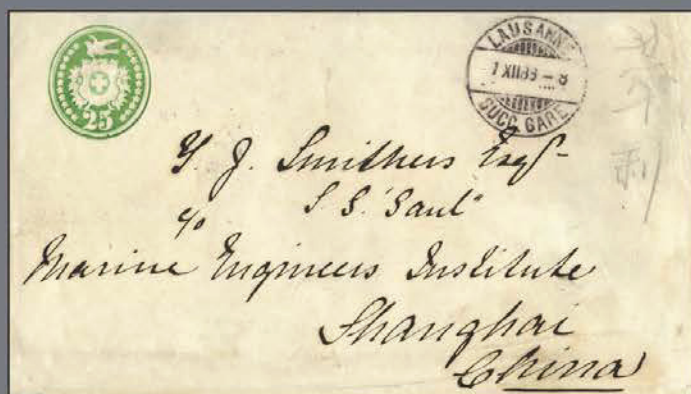 25
LAUSANNE
1 XII 88 - 8
SUCC. GARE
Y. J. Smithers Esqr
c/o S S. "Saul"
Marine Engineers Institute
Shanghai
China